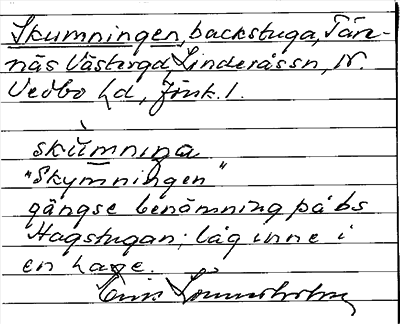 Skumningen, backstuga, Tär-
näs Västergd, Linderåssn, N.
Vedbo hd, Jönk. l.
skùmnina
"Skymningen"
gängse benämning på bs
Hagstugan; låg inne i
en hage.